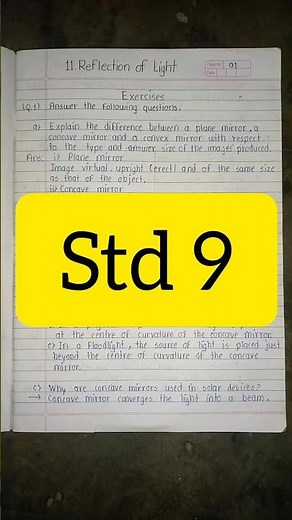 11. Reflection of Light
01
Exercises
Q.1) Answer the following questions.
a) Explain the difference between a plane mirror, a
concave mirror and a convex mirror with respect
to the type and answer size of the images produced.
Ans: i) Plane mirror
Image virtual, upright (erect) and of the same size
as that of the object.
ii) Concave mirror
Std 9
at the centre of curvature of the concave mirror.
c) In a Floodlight, the source of light is placed just
beyond the centre of curvature of the concave
mirror.
c) Why are concave mirrors used in solar devices?
→ Concave mirror converges the light into a beam.